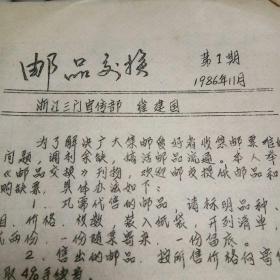 邮品交换
第1期
1986年11月
浙江三门宣传部 崔建国
为了解决广大集邮爱好者收集邮票难的
问题，调剂余缺，搞活邮品流通。本人举
《邮品交换》刊物，欢迎邮友提供邮品和
购缺票，具体办法如下：
1. 凡需代售的邮品 请标明品种、
目、价格、枚数 装入纸袋，开列清单，
式两份 一份随票寄来 一份留底。
2. 售出的邮品 按所售价格向寄
取4%手续费